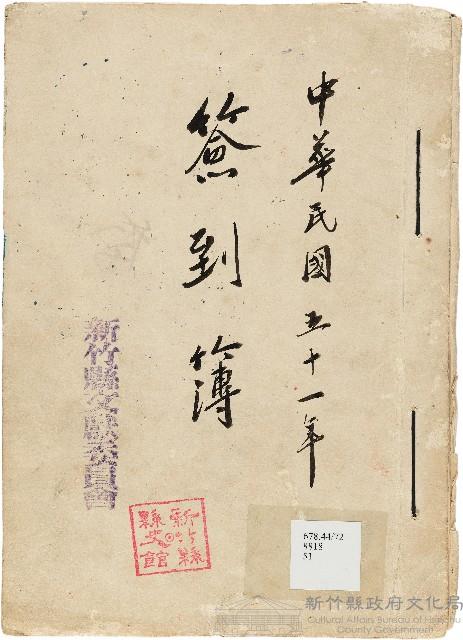 中華民國五十一年
簽到簿
新竹縣文獻委員會
新竹縣
縣史館
678.44/72
8818
51
新竹縣政府文化局
Cultural Affairs Bureau of Hsinchu
County Government